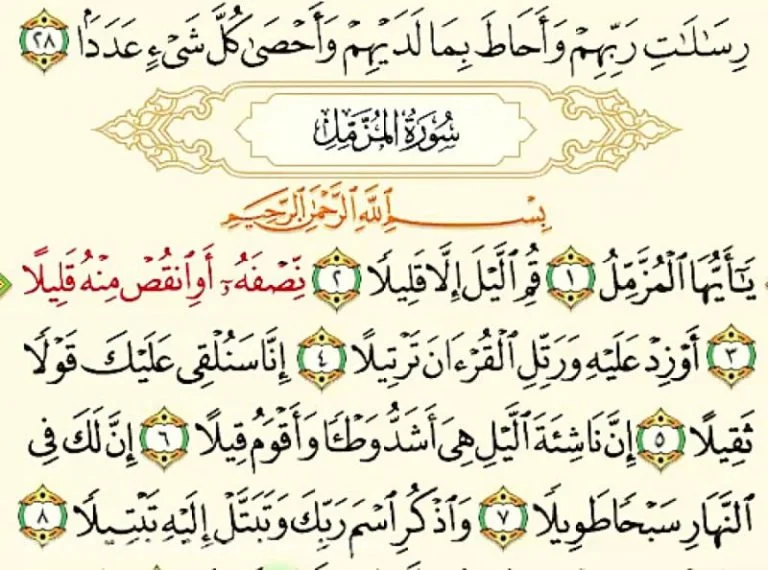 رِسَٰلَٰتِ رَبِّهِمْ وَأَحَاطَ بِمَا لَدَيْهِمْ وَأَحْصَىٰ كُلَّ شَىْءٍ عَدَدًۢا ٢٨
سُورَةُ المُزَّمِّلِ
بِسْمِ ٱللَّهِ ٱلرَّحْمَٰنِ ٱلرَّحِيمِ
يَٰٓأَيُّهَا ٱلْمُزَّمِّلُ ١ قُمِ ٱلَّيْلَ إِلَّا قَلِيلًا ٢ نِّصْفَهُۥٓ أَوِ ٱنقُصْ مِنْهُ قَلِيلًا
٣ أَوْ زِدْ عَلَيْهِ وَرَتِّلِ ٱلْقُرْءَانَ تَرْتِيلًا ٤ إِنَّا سَنُلْقِى عَلَيْكَ قَوْلًا
ثَقِيلًا ٥ إِنَّ نَاشِئَةَ ٱلَّيْلِ هِىَ أَشَدُّ وَطْـًٔا وَأَقْوَمُ قِيلًا ٦ إِنَّ لَكَ فِى
ٱلنَّهَارِ سَبْحًا طَوِيلًا ٧ وَٱذْكُرِ ٱسْمَ رَبِّكَ وَتَبَتَّلْ إِلَيْهِ تَبْتِيلًا ٨